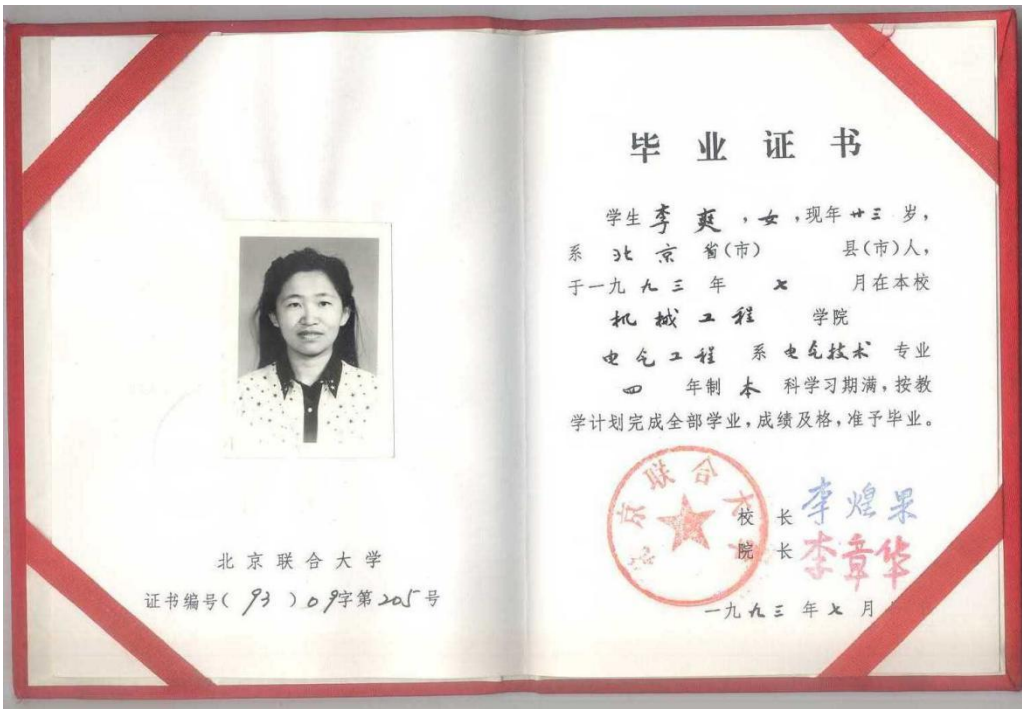 北京联合大学
证书编号(93)09字第205号
毕业证书
学生李爽,女,现年廿三岁,
系北京省(市) 县(市)人,
于一九九三年七月在本校
机械工程学院
电气工程系电气技术专业
四年制本科学习期满,按教
学计划完成全部学业,成绩及格,准予毕业。
北京联合大学
校长李煌果
院长李章华
一九九三年七月